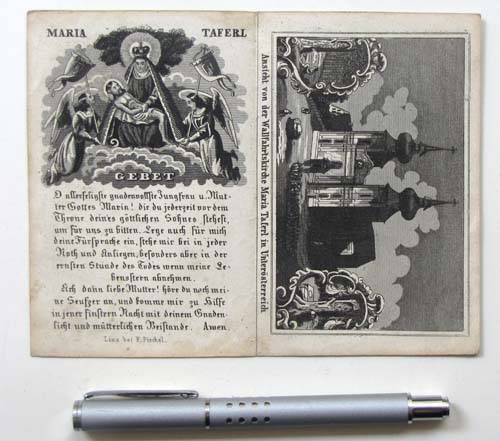 MARIA TAFERL
GEBET
O allerseligste gnadenvollste Jungfrau u. Mut-
ter Gottes Maria! die du jederzeit vor dem
Throne deines göttlichen Sohnes stehest,
um für uns zu bitten. Lege auch für mich
deine Fürsprache ein, stehe mir bei in jeder
Noth und Anliegen, besonders aber in der
ernsten Stunde des Todes wenn meine Le-
bensstern abnehmen.
Ach dann liebe Mutter! höre du noch mei-
ne Seufzer an, und komme mir zu Hilfe
in jener finstern Nacht mit deinem Gnaden-
licht und mütterlichen Beistande. Amen.
Linz bei F. Pirchel.
Ansicht von der Wallfahrtskirche Maria Taferl in Unterösterreich